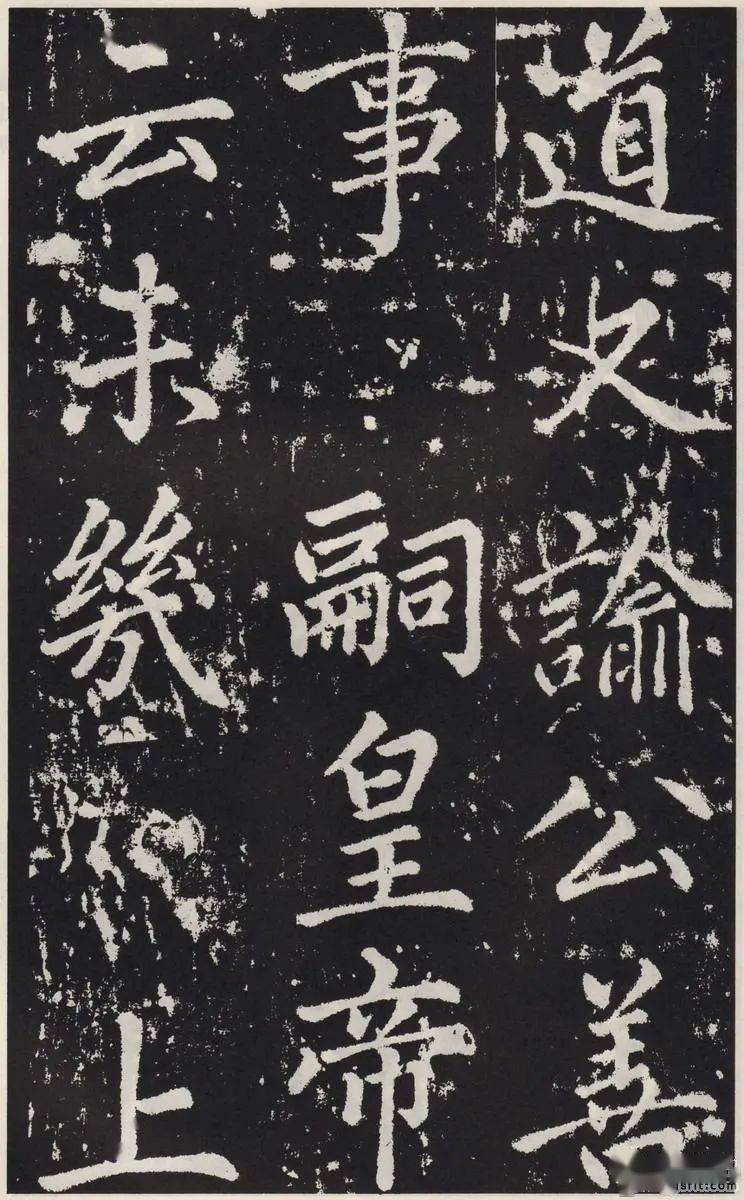 道又諭公善
事嗣皇帝
云未幾
上
jsfit.com